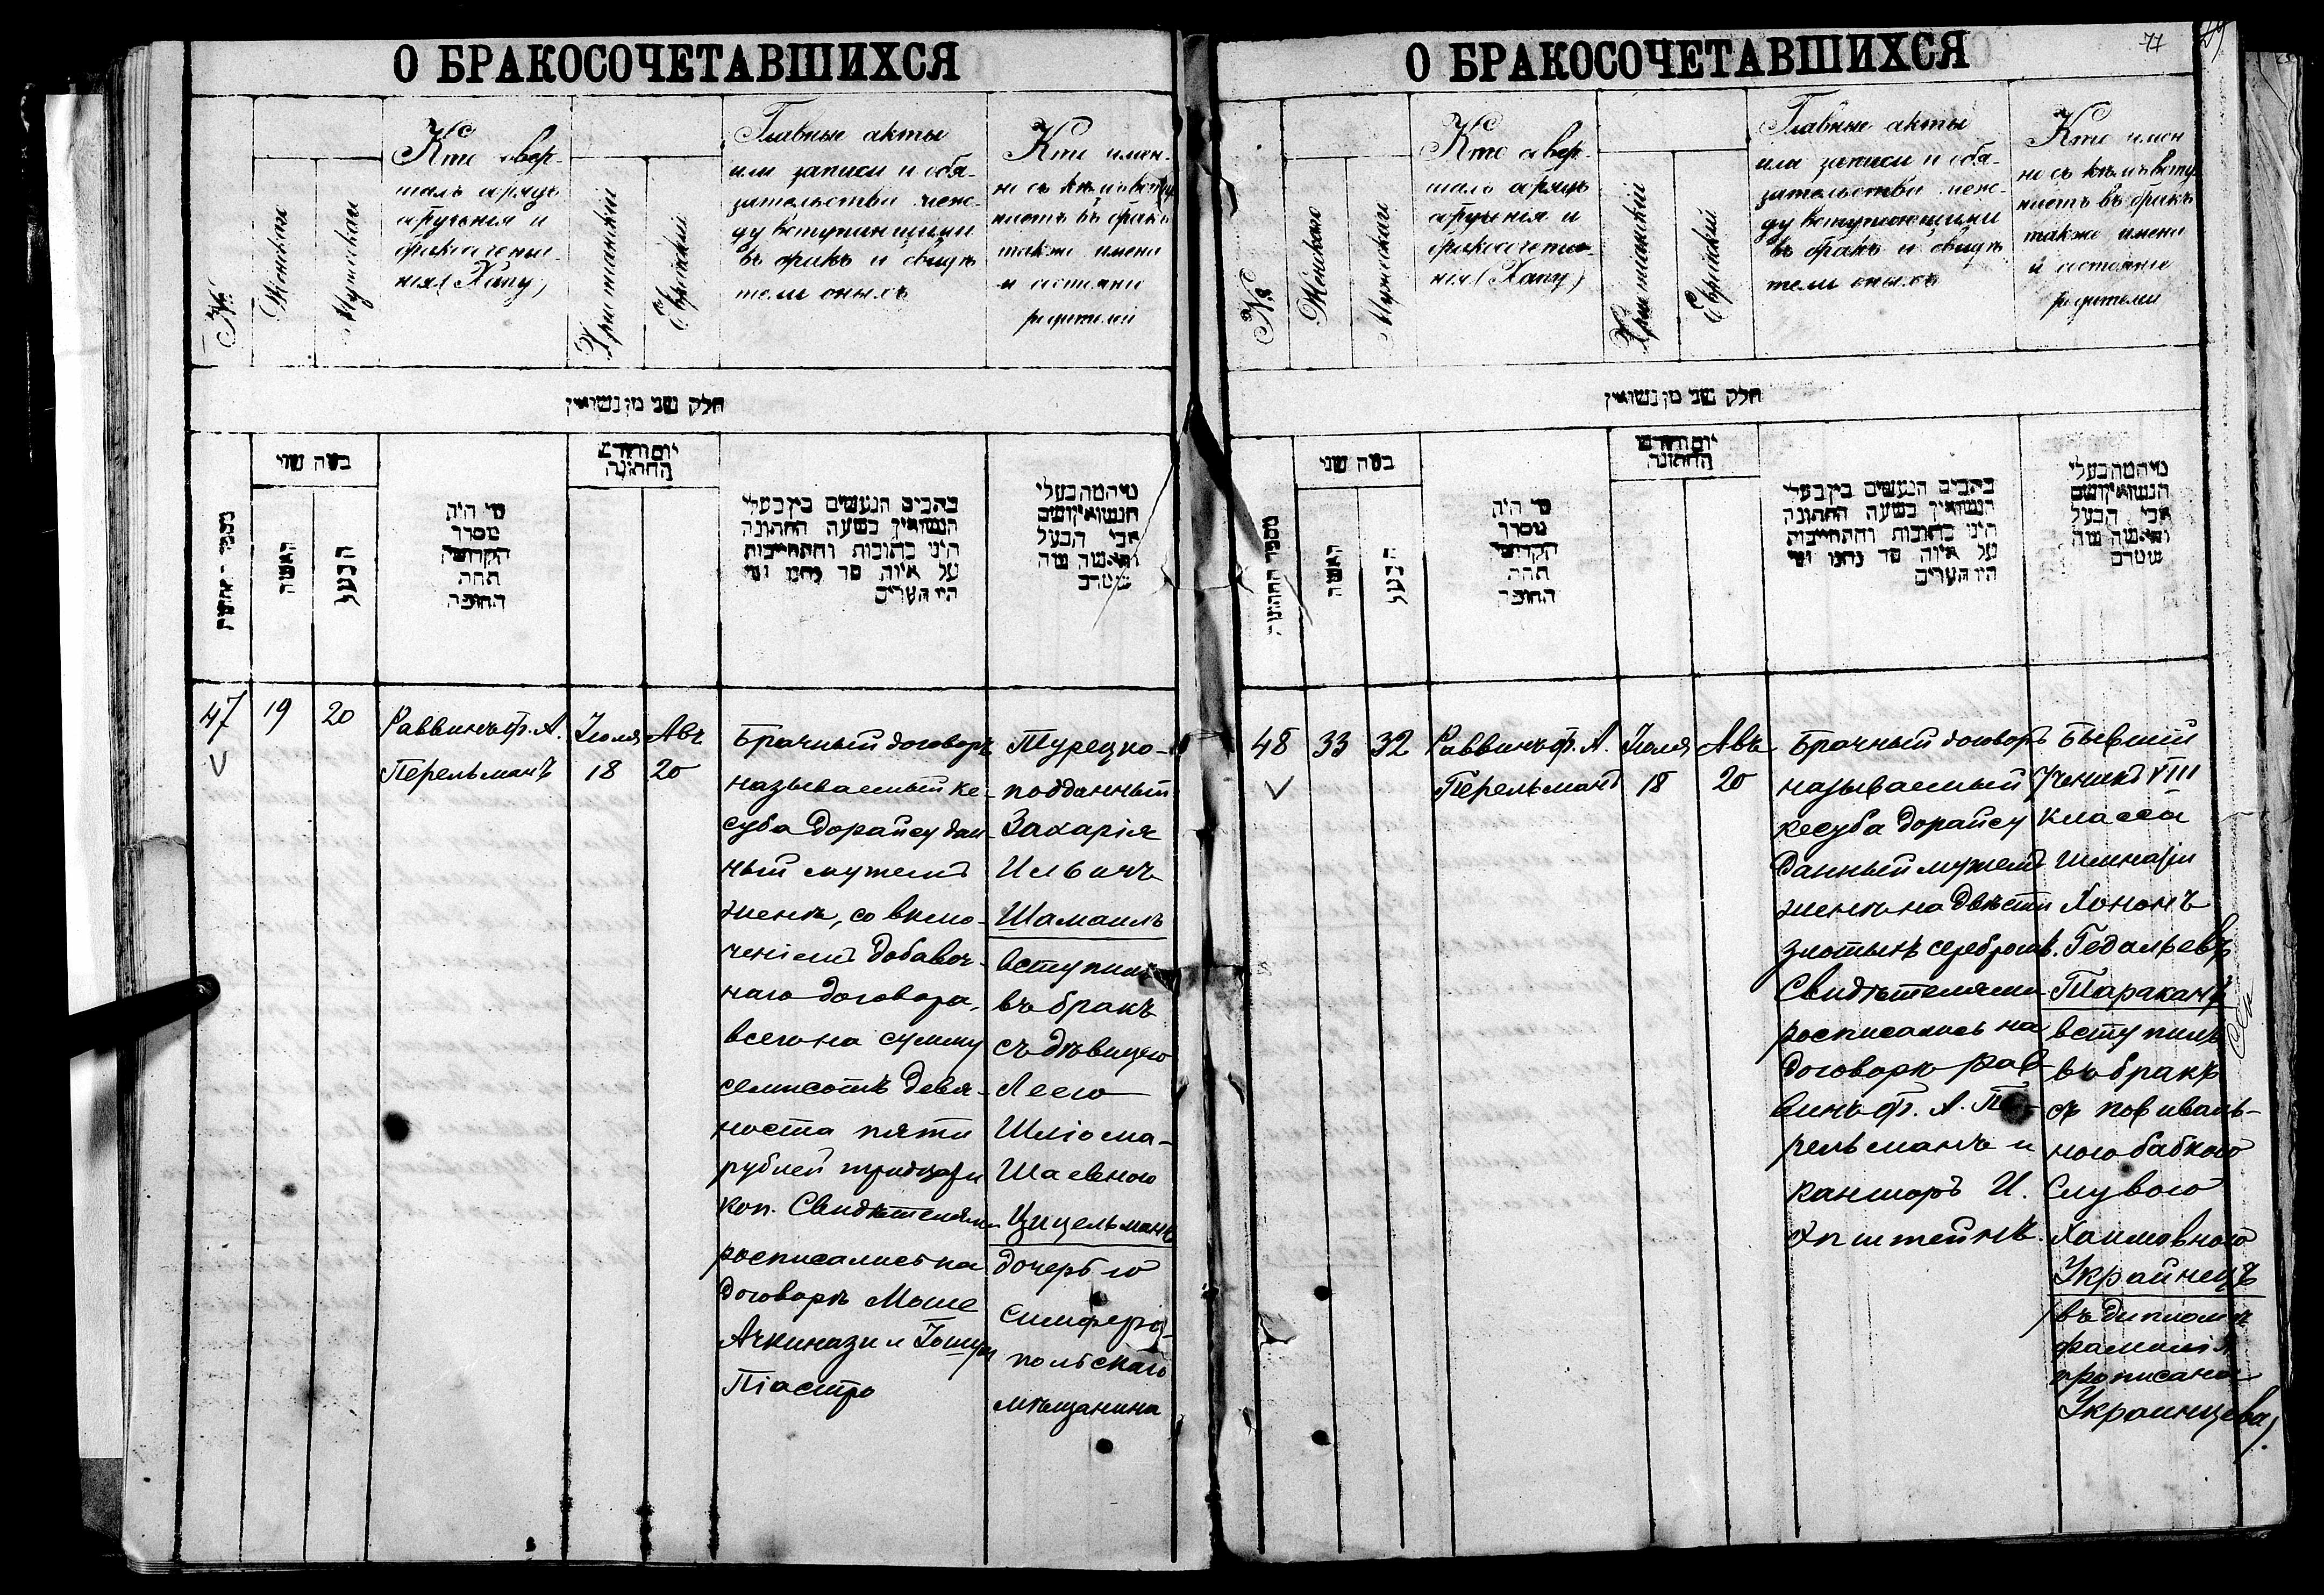 О БРАКОСОЧЕТАВШИХСЯ
№
Женская
Мужская
Кто совер-
шалъ обрядъ
обрученія и
бракосочета-
нія (Хупу)
Христіанскій
Еврейскій
Главные акты
или записи и обя-
зательства меж-
ду вступающими
въ бракъ и свидѣ
тели оныхъ
Кто имен-
но съ кѣмъ вступ
аетъ въ бракъ
также имена
и состояніе
родителей
חלק שני מן נשואין
כמה שני
האשה
הבעל
מי היה
מסדר
הקדושי
תחת
החופה
יום וחדש
החתונה
כתבים הנעשים בין בעלי
הנשואין בשעה החתונה
היינו כתובות והתחייבות
על איזה סך נתנו ומי
היו העדים
מי המה בעלי
הנשואין ושם
אבי הבעל
והאשה
47
19
20
Раввинъ Ф. А.
Перельманъ
Іюля
18
Авъ
20
Брачный договоръ
называемый ке-
суба дорайсу дан-
ный мужемъ
женѣ, со вклю-
ченіемъ добавоч-
наго договора,
всего на сумму
семисотъ девя-
носта пяти
рублей тридцати
коп. Свидѣтелями
росписались на
договорѣ Моше
Ачкинази и Іошуа
Піастро
Турецко-
подданный
Захарія
Ильичъ
Шамаилъ
вступилъ
въ бракъ
съ дѣвицею
Леею
Шліома-
Шаевною
Цицельманъ
дочерью
Симферо-
польскаго
мѣщанина
О БРАКОСОЧЕТАВШИХСЯ
71
№
Женская
Мужская
Кто совер-
шалъ обрядъ
обрученія и
бракосочета-
нія (Хупу)
Христіанскій
Еврейскій
Главные акты
или записи и обя-
зательства меж-
ду вступающими
въ бракъ и свидѣ
тели оныхъ
Кто имен
но съ кѣмъ вступ
аетъ въ бракъ
также имена
и состояніе
родителей
חלק שני מן נשואין
מספר החתונה
כמה שני
האשה
הבעל
מי היה
מסדר
הקדושי
תחת
החופה
יום וחדש
החתונה
כתבים הנעשים בין בעלי
הנשואין בשעה החתונה
היינו כתובות והתחייבות
על איזה סך נתנו ומי
היו העדים
מי המה בעלי
הנשואין ושם
אבי הבעל
והאשה
48
33
32
Раввинъ Ф. А.
Перельманъ
Іюля
18
Авъ
20
Брачный договоръ
называемый
кесуба дорайсу
данный мужемъ
женѣ на двѣсти
злотыхъ серебромъ.
Свидѣтелями
росписались на
договорѣ рав-
винъ Ф. А. Пе-
рельманъ и
канторъ И.
Эпштейнъ.
Бывшій
ученикъ VIII
класса
гимназіи
Хононъ
Гедальевъ
Тараканъ
вступилъ
въ бракъ
съ повиваль-
ною бабкою
Слувою
Хаимовною
Украинецъ
(въ дипломѣ
фамилія
прописана
Украинцева).